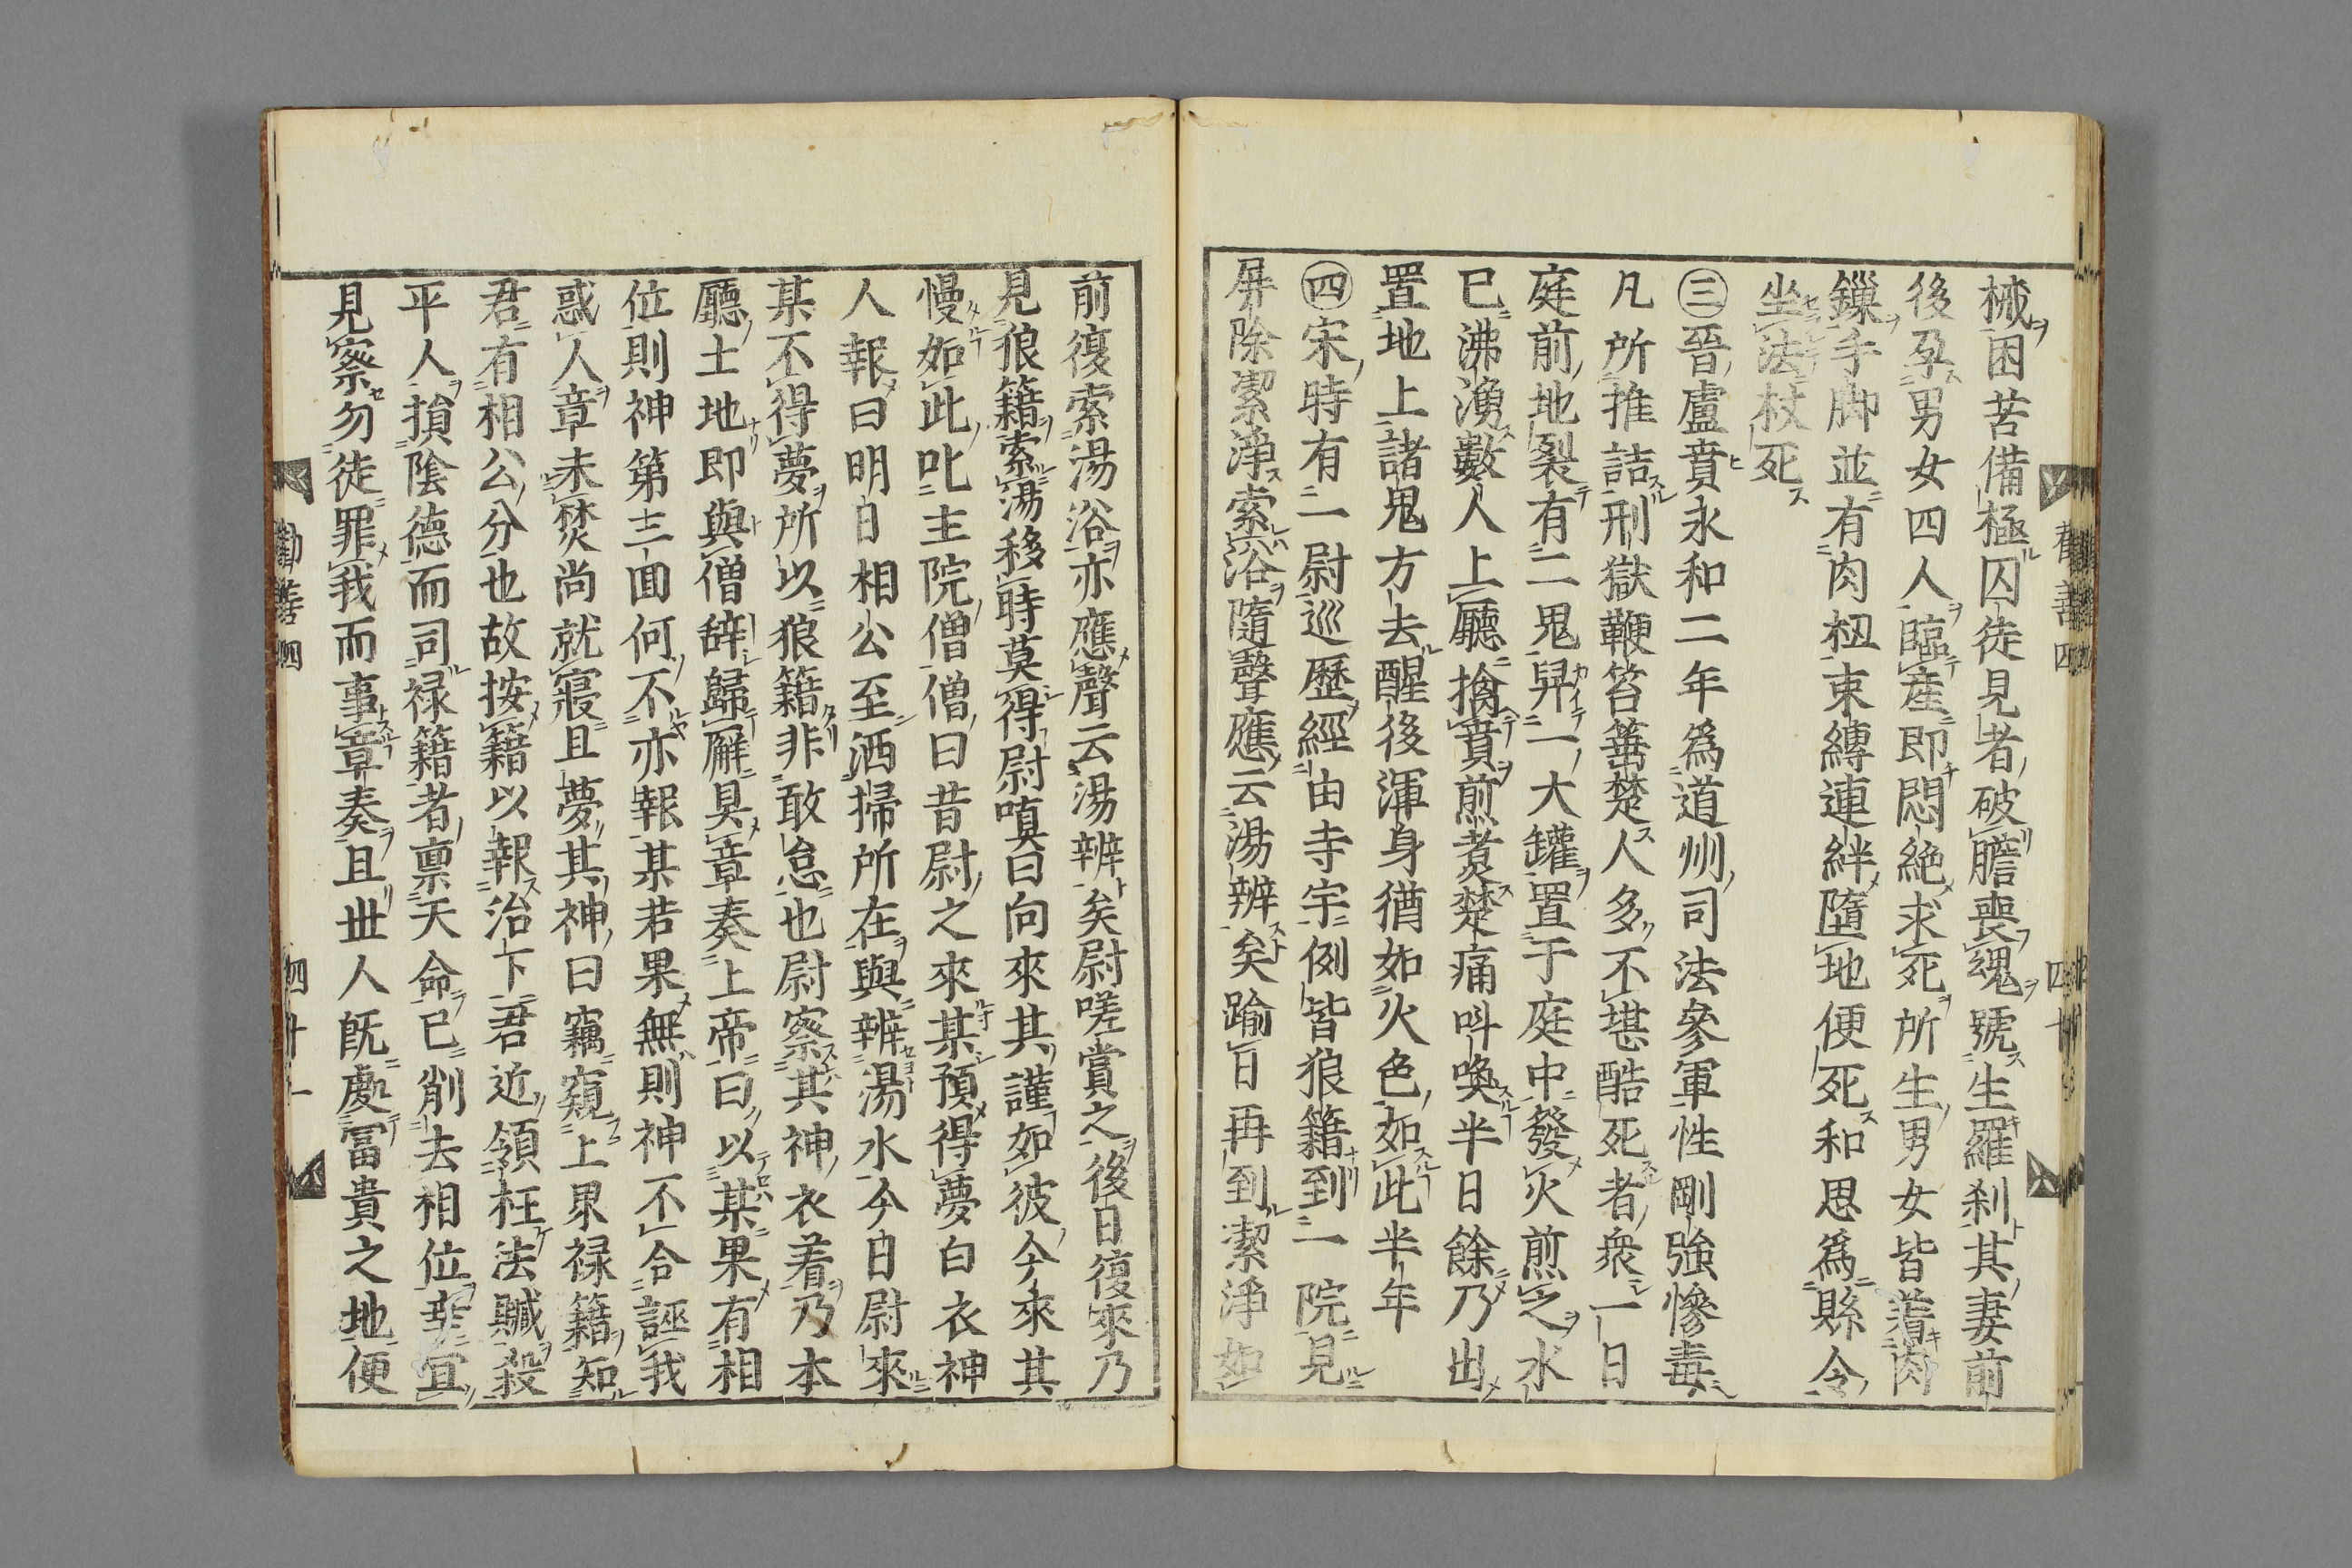 械困苦備極囚徒見者破膽喪魂號生羅刹其妻前
後孕男女四人臨產即悶絶求死所生男女皆着肉
鏁手脚並有肉杻束縛連絆墮地便死和思爲縣令
坐法杖死
㊂晉盧賁永和二年爲道州司法參軍性剛強慘毒
凡所推詰刑獄鞭笞箠楚人多不堪酷死者衆一日
庭前地裂有二鬼舁一大罐置于庭中發火煎之水
已沸湧數人上廳擒賁煎煮楚痛呌喚半日餘乃出
置地上諸鬼方去醒後渾身猶如火色如此半年
㊃宋時有二尉巡歷經由寺宇例皆狼籍到一院見
屏除潔淨索浴隨聲應云湯辨矣踰日再到潔淨如
前復索湯浴亦應聲云湯辨矣尉嗟賞之後日復來乃
見狼籍索湯移時莫得尉嗔曰向來其謹如彼今來其
慢如此叱主院僧僧曰昔尉之來某預得夢白衣神
人報曰明日相公至洒掃所在與辨湯水今日尉來
某不得夢所以狼籍非敢怠也尉察其神衣着乃本
廳土地即與僧辞歸廨具章奏上帝曰以某果有相
位則神第三囬何不亦報某若果無則神不合誣我
惑人章未焚尚就寢且夢其神曰竊窺上界禄籍知
君有相公分也故按籍以報治下君近領枉法贓殺
平人損陰德而司禄籍者禀天命已削去相位辜宜
見察勿徒罪我而事章奏且世人既處冨貴之地便
勸善四
四十一
勸善四
四十